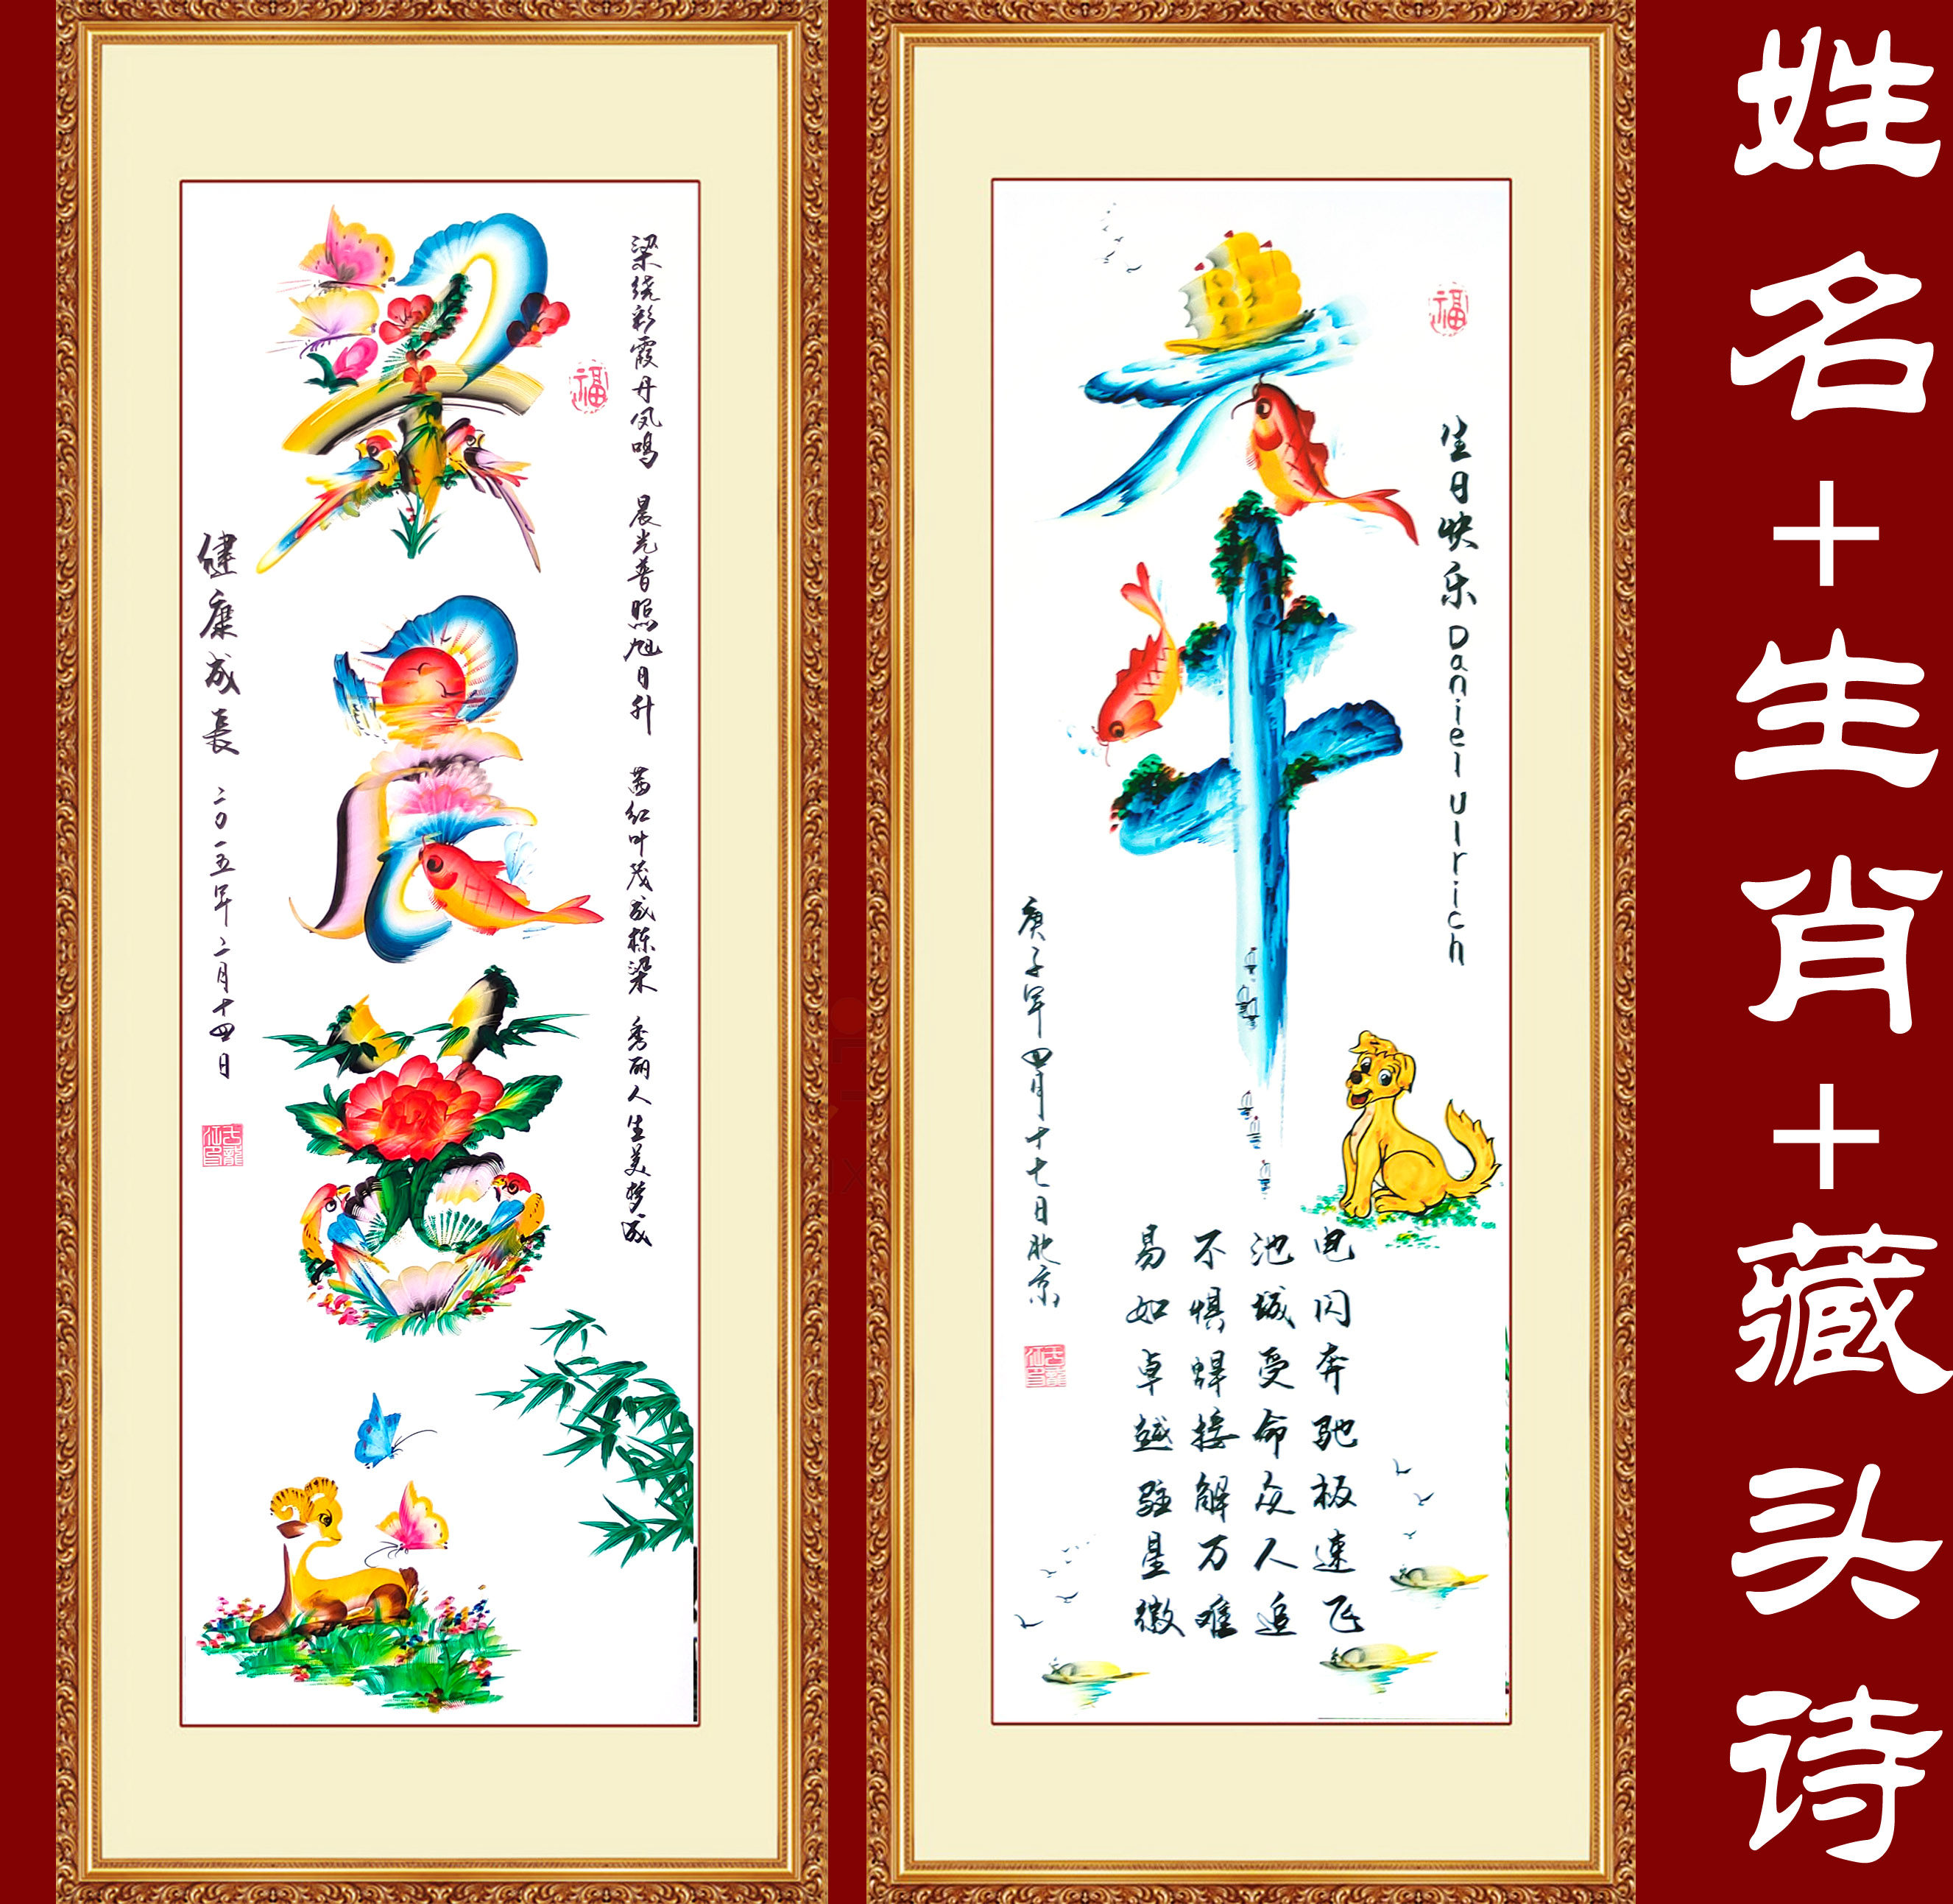 姓名+生肖+藏头诗
福
生日快乐 Daniel Ulrich
奔
电闪奔驰极速飞
池城受命众人追
不惧焊接解万难
易如卓越驻星徽
庚子年四月十七日北京
梁绕彩霞丹凤鸣 晨光普照旭日升 茜红叶茂成栋梁 秀丽人生美梦成
福
健康成长 二〇一五年二月十四日